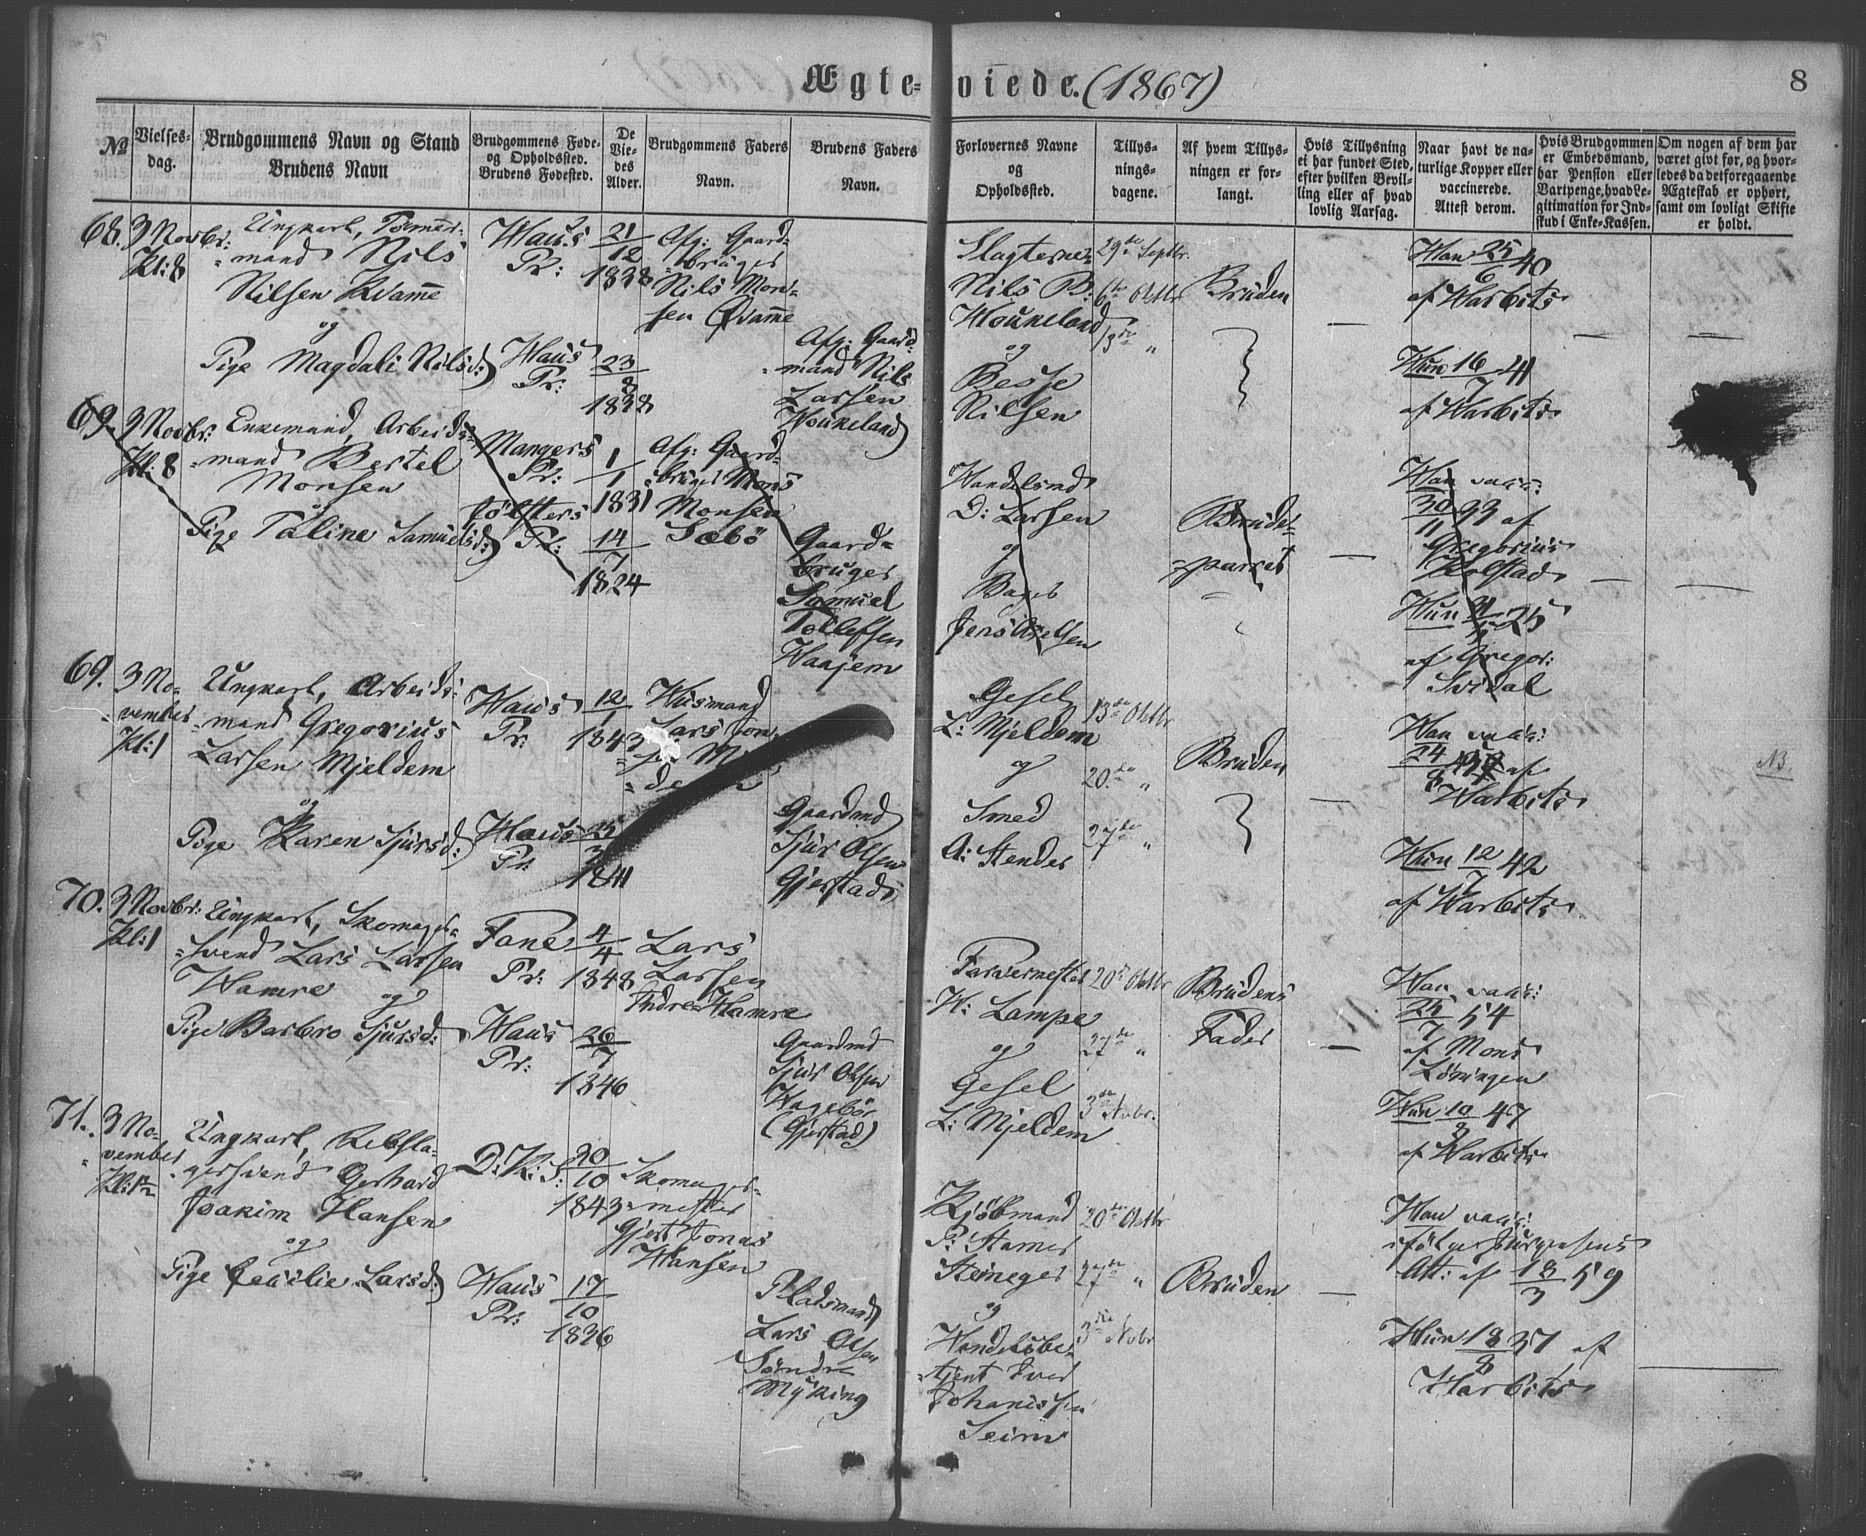 Ægte-viede. (1867)
8
№
Vielses-
dag.
Brudgommens Navn og Stand
Brudens Navn
Brudgommens Føde-
og Opholdssted.
Brudens Fødested.
De
Vie-
des
Alder.
Brudgommens Faders
Navn.
Brudens Faders
Navn.
Forlovernes Navne
og
Opholdssted.
Tillys-
nings-
dagene.
Af hvem Tillys-
ningen er for-
langt.
Hvis Tillysning
ei har fundet Sted,
efter hvilken Bevil-
ling eller af hvad
lovlig Aarsag.
Naar havt de na-
turlige Kopper eller
vaccinerede.
Attest derom.
Hvis Brudgommen
er Embedsmand,
har Pension eller
Vartpenge, hvad Le-
gitimation for Ind-
skud i Enke-Kassen.
Om nogen af dem har
været givt før, og hvor-
ledes da det foregaaende
Ægteskab er ophørt,
samt om lovligt Skifte
er holdt.
68.
3 Novbr:
Kl: 8
Ungkarl, Tømmer-
mand Nils
Nilsen Kvamme
og
Pige Magdali Nilsd:
Haus
Pr:
Haus
Pr:
21
12
1838
23
8
1838
Afg: Gaard-
bruger
Nils Mon-
sen Qvamme
Afg: Gaard-
mand Nils
Larsen
Houkeland
Nils B:
Houkeland
og
Nilsen
29de Septbr.
6te Oktbr
13de "
Bruden
Han 25
6 40
af Harbitz
Hun 16
7 41
af Harbitz
69.
3 Novbr:
Kl: 8
Enkemand, Arbeids-
mand Bertel
Monsen
og
Pige Taline Samuelsd:
Mangers
Pr:
Pr:
1
1
1831
14
7
1824
Afg: Gaard-
bruger Mons
Monsen
Sæbö
Gaard-
bruger
Samuel
Tollefsen
Haajem
D: Larsen
og
Brude-
parret
Han vacc:
30
11 33 af
Gregorius
Hun
25
af Gregor:
Svidal
69.
3 No-
vember
Kl: 1
Ungkarl, Arbeids-
mand Gregorius
Larsen Mjeldem
og
Pige Karen Sjursd:
Haus
Pr:
Haus
Pr:
12
1
1843
25
3
1841
Husmand
Lars
Gaardmd
Sjur Olsen
Gjerstad
Gesel
L: Mjeldem
og
Smed
A: Stender
13de Oktbr
20de "
27de "
Bruden
Han vacc:
24
8
af
Harbitz
Hun 12
7 42
af Harbitz
NB
70.
3 Novbr:
Kl: 1
Ungkarl, Skomager-
svend Lars Larsen
Hamre og
Pige Barbro Sjursd:
Fane
Pr:
Haus
Pr:
4
4
1848
26
7
1846
Lars
Larsen
Indre Hamre
Gaardmd
Sjur Olsen
Hagebö
(Gjerstad)
Farvermester
H: Lampe
og
Gesel
L: Mjeldem
20de Oktbr
27de "
3de Nvbr.
Brudens
Fader
Han vacc:
25
7 54
af Mons
Löningen
Hun 10
8 47
af Harbitz
71.
3 No-
vember
Kl: 1½
Ungkarl, Rebsla-
gersvend Gerhard
Joakim Hansen
og
Pige Cecilie Larsd:
D: K: S:
Haus
Pr:
30
10
1843
17
10
1836
Skomager-
mester
Gjert Jonas
Hansen
Pladsmand
Lars Olsen
Söndre
Myking
Kjöbmand
P: Stamer
Steineger
og
Handelsbe-
tjent Iver
Johanessen
Seim
20de Oktbr
27de "
3die Nvbr
Bruden
Han vacc:
ifölge Jürgensens
Att: af 18
3 59
Hun 18
8 37 af
Harbitz